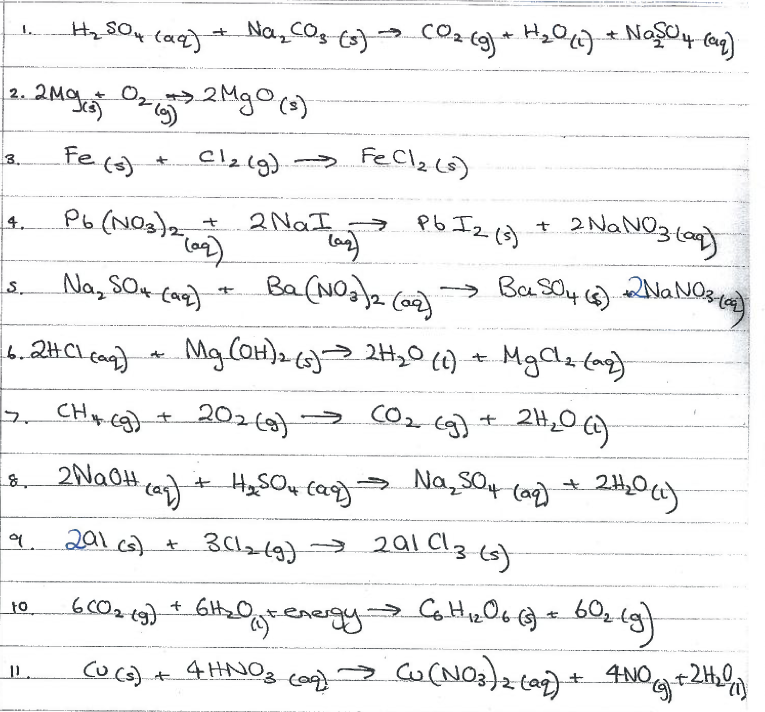 1. H₂SO₄ (aq) + Na₂CO₃ (s) → CO₂ (g) + H₂O (l) + Na₂SO₄ (aq)
2. 2Mg (s) + O₂ (g) → 2MgO (s)
3. Fe (s) + Cl₂ (g) → FeCl₂ (s)
4. Pb(NO₃)₂ (aq) + 2NaI (aq) → PbI₂ (s) + 2NaNO₃ (aq)
5. Na₂SO₄ (aq) + Ba(NO₃)₂ (aq) → BaSO₄ (s) + 2NaNO₃ (aq)
6. 2HCl (aq) + Mg(OH)₂ (s) → 2H₂O (l) + MgCl₂ (aq)
7. CH₄ (g) + 2O₂ (g) → CO₂ (g) + 2H₂O (l)
8. 2NaOH (aq) + H₂SO₄ (aq) → Na₂SO₄ (aq) + 2H₂O (l)
9. 2Al (s) + 3Cl₂ (g) → 2AlCl₃ (s)
10. 6CO₂ (g) + 6H₂O (l) + energy → C₆H₁₂O₆ (s) + 6O₂ (g)
11. Cu (s) + 4HNO₃ (aq) → Cu(NO₃)₂ (aq) + 4NO (g) + 2H₂O (l)